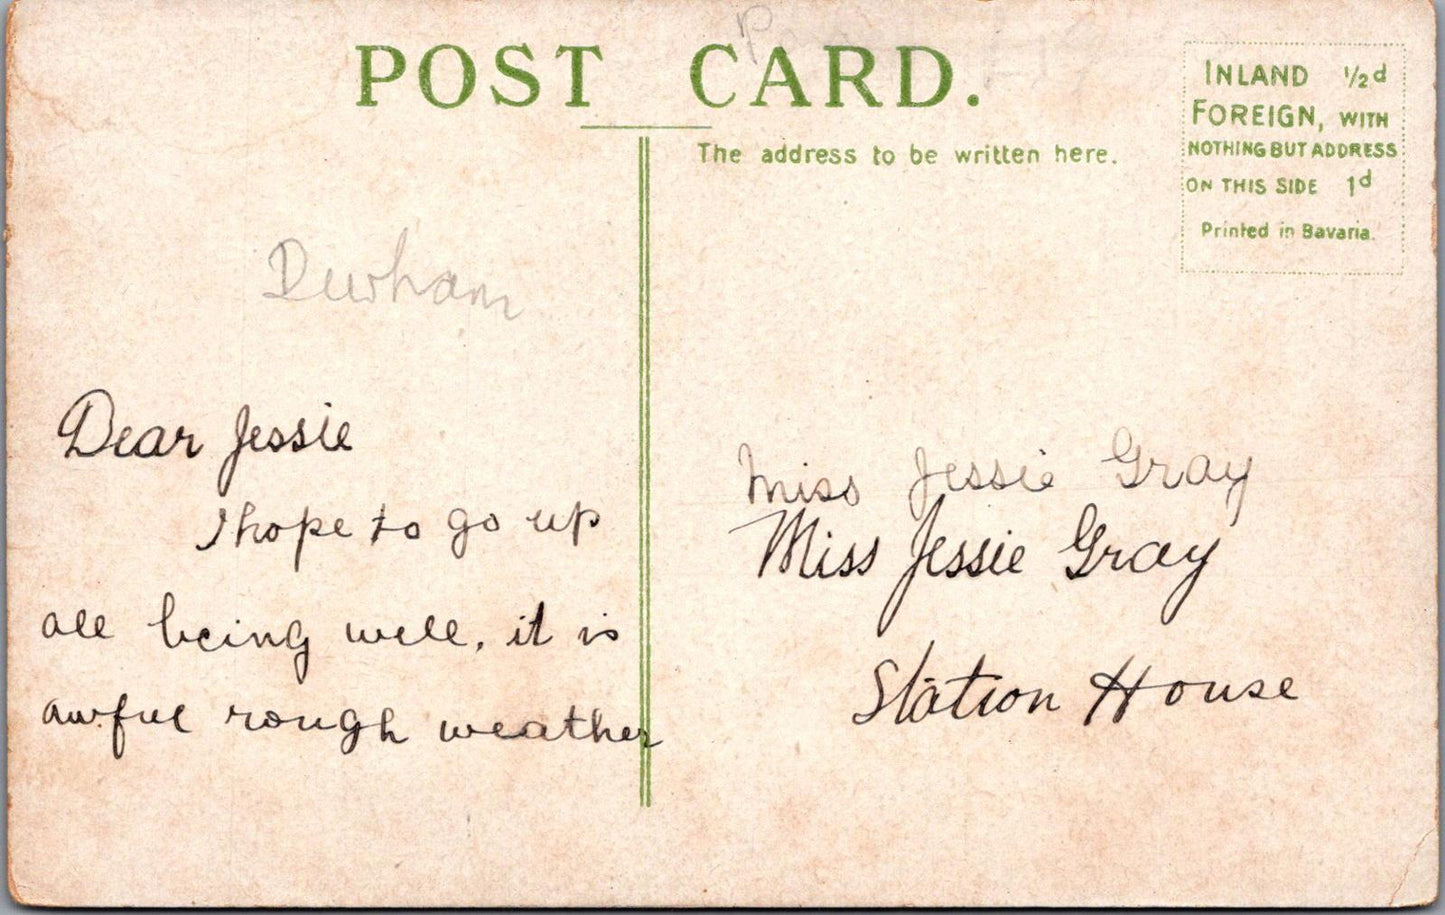 POST CARD.
The address to be written here.
INLAND ½d
FOREIGN, WITH
NOTHING BUT ADDRESS
ON THIS SIDE 1d
Printed in Bavaria.
Durham
Dear Jessie
I hope to go up
all being well, it is
awful rough weather
Miss Jessie Gray
Miss Jessie Gray
Station House